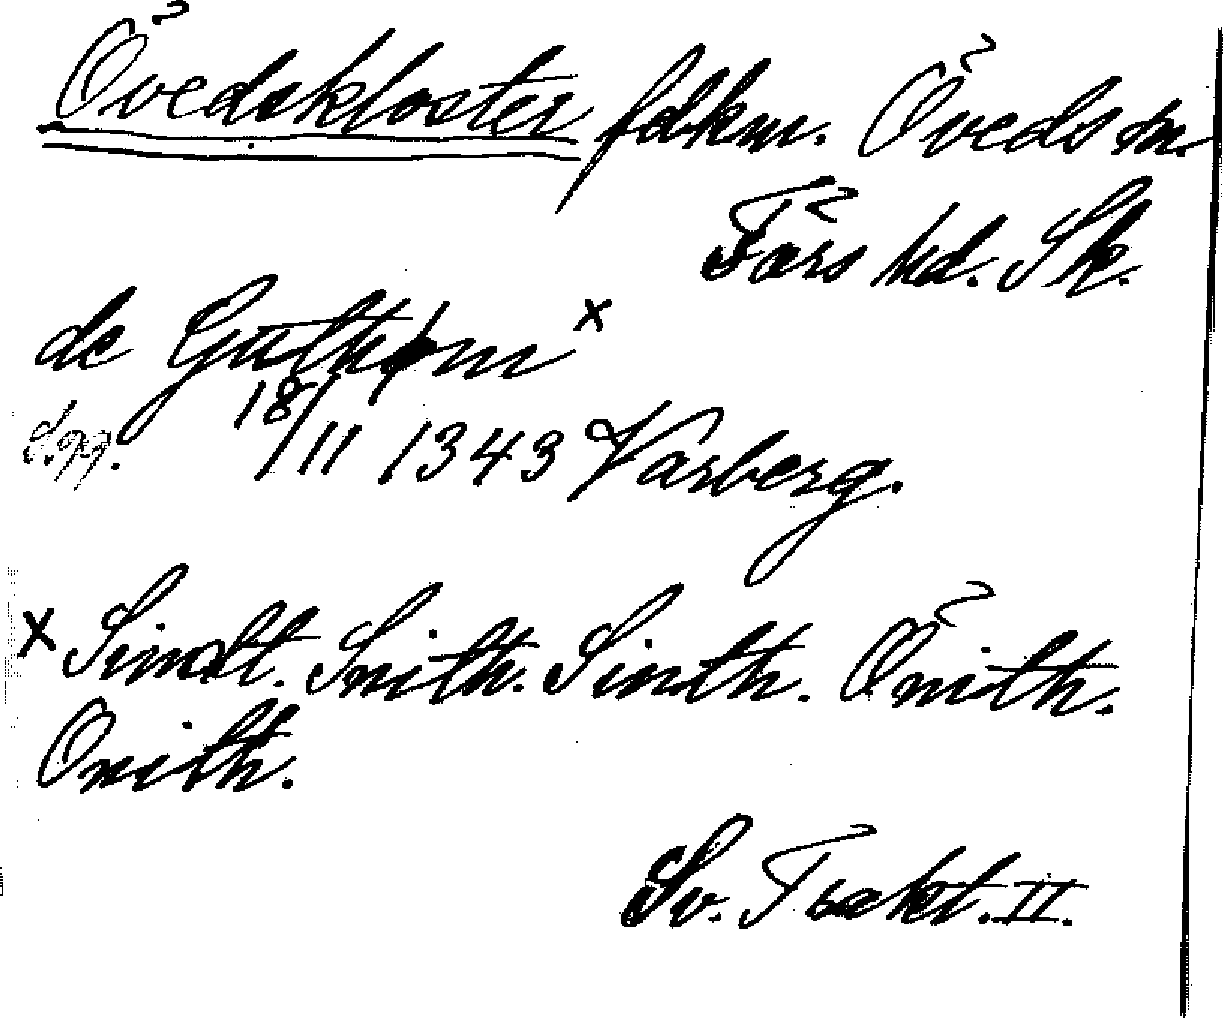 Övedskloster fdkm. Öveds sn.
Färs hd. Sk.
de Guthøm x
18/11 1343 Varberg.
x Simdt. Snith. Sinth. Önith.
Onith.
Sv. Trakt. II.